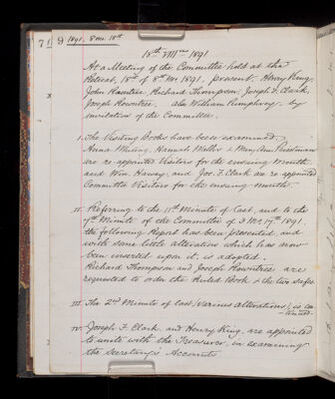 71 9 1891. 8 mo. 18th
18th VIIImo 1891
At a Meeting of the Committee held at the
Retreat, 18th of 8th Mo. 1891. present. Henry King,
John Rowntree, Richard Thompson, Joseph F. Clark,
Joseph Rowntree. also William Pumphrey by
invitation of the Committee.
I. The Visiting Books have been examined.
Anna Waring, Hannah Waller & Mary Ann
are re-appointed Visitors for the ensuing Month
and Wm. Harvey, and Jos. F. Clark are re-appointed
Committee Visitors for the ensuing Month.
II. Referring to the 11th Minute of last, and to the
7th Minute of the Committee of 3 Mo. 17th 1891.
the following Report has been presented, and
with some little alterations which has now
been inserted upon it, is adopted.
Richard Thompson and Joseph Rowntree are
requested to order the Ruled Book & the two safes.
III. The 2nd Minute of last (various alterations), is con-
tinued.
IV. Joseph F. Clark and Henry King, are appointed
to unite with the Treasurer, in examining
the Secretary's Accounts